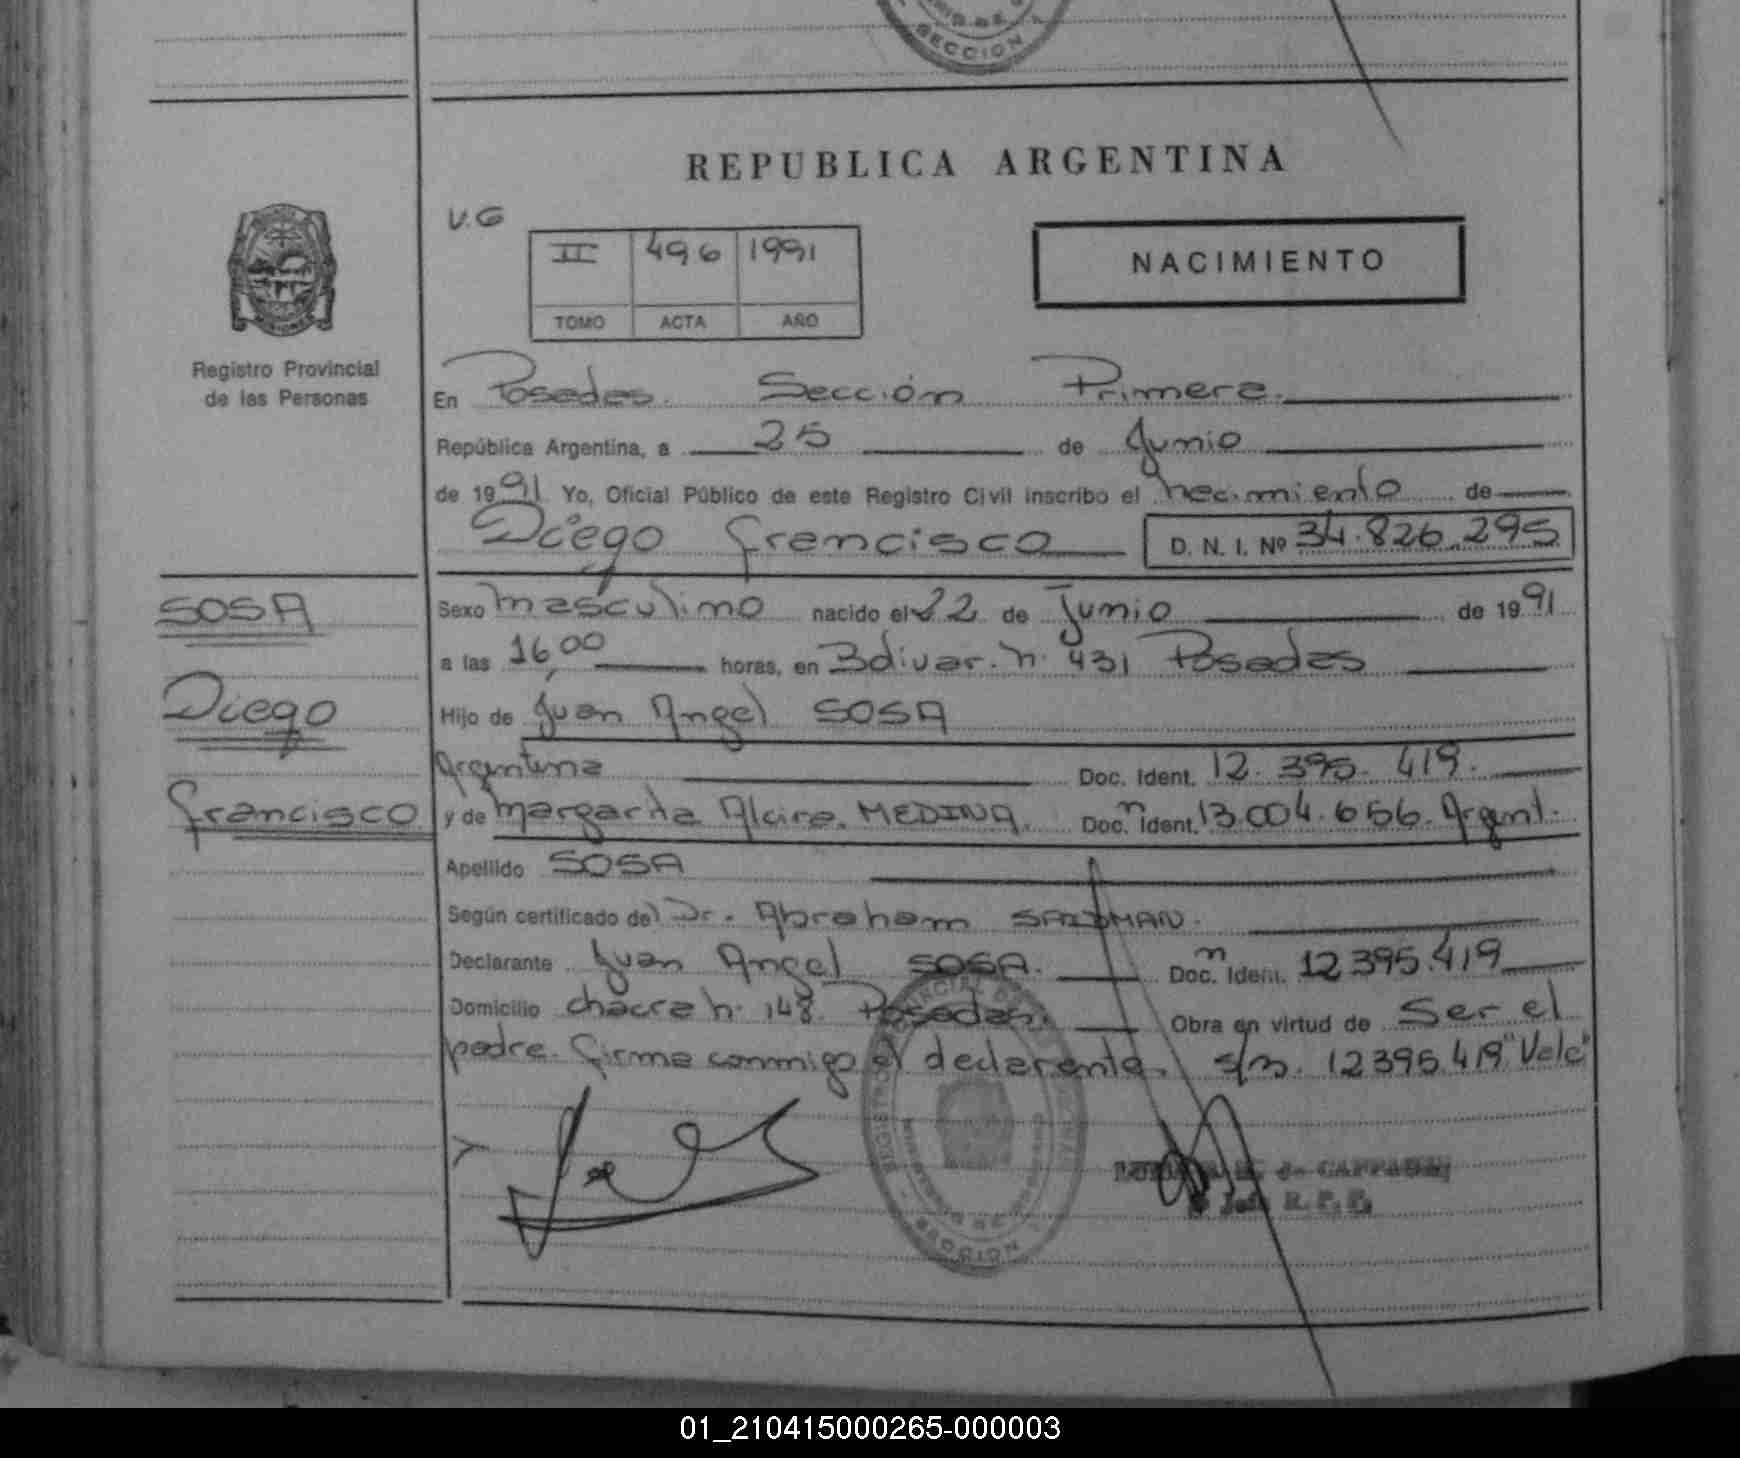 SECCION
REPUBLICA ARGENTINA
V.G
II 496 1991
TOMO ACTA AÑO
NACIMIENTO
Registro Provincial
de las Personas
En Posadas. Sección Primera.
República Argentina, a 25 de Junio
de 1991 Yo, Oficial Público de este Registro Civil inscribo el nacimiento de
Diego Francisco D. N. I. Nº 34.826.295
SOSA
Diego
Francisco
Sexo masculino nacido el 22 de Junio de 1991
a las 16,00 horas, en Bolivar. n. 431 Posadas
Hijo de Juan Angel SOSA
Argentina Doc. Ident. 12. 395. 419.
y de Margarita Alcira. MEDINA. Doc. Ident. n 13.004.656. Argent.
Apellido SOSA
Según certificado del Dr. Abraham
Declarante Juan Angel SOSA. Doc. Ident. n 12395.419
Domicilio chacra n. 148. Posadas. Obra en virtud de Ser el
padre. Firma conmigo el declarante. s/n. 12395.419 "Vale"
SECCION
R. P. P.
01_210415000265-000003